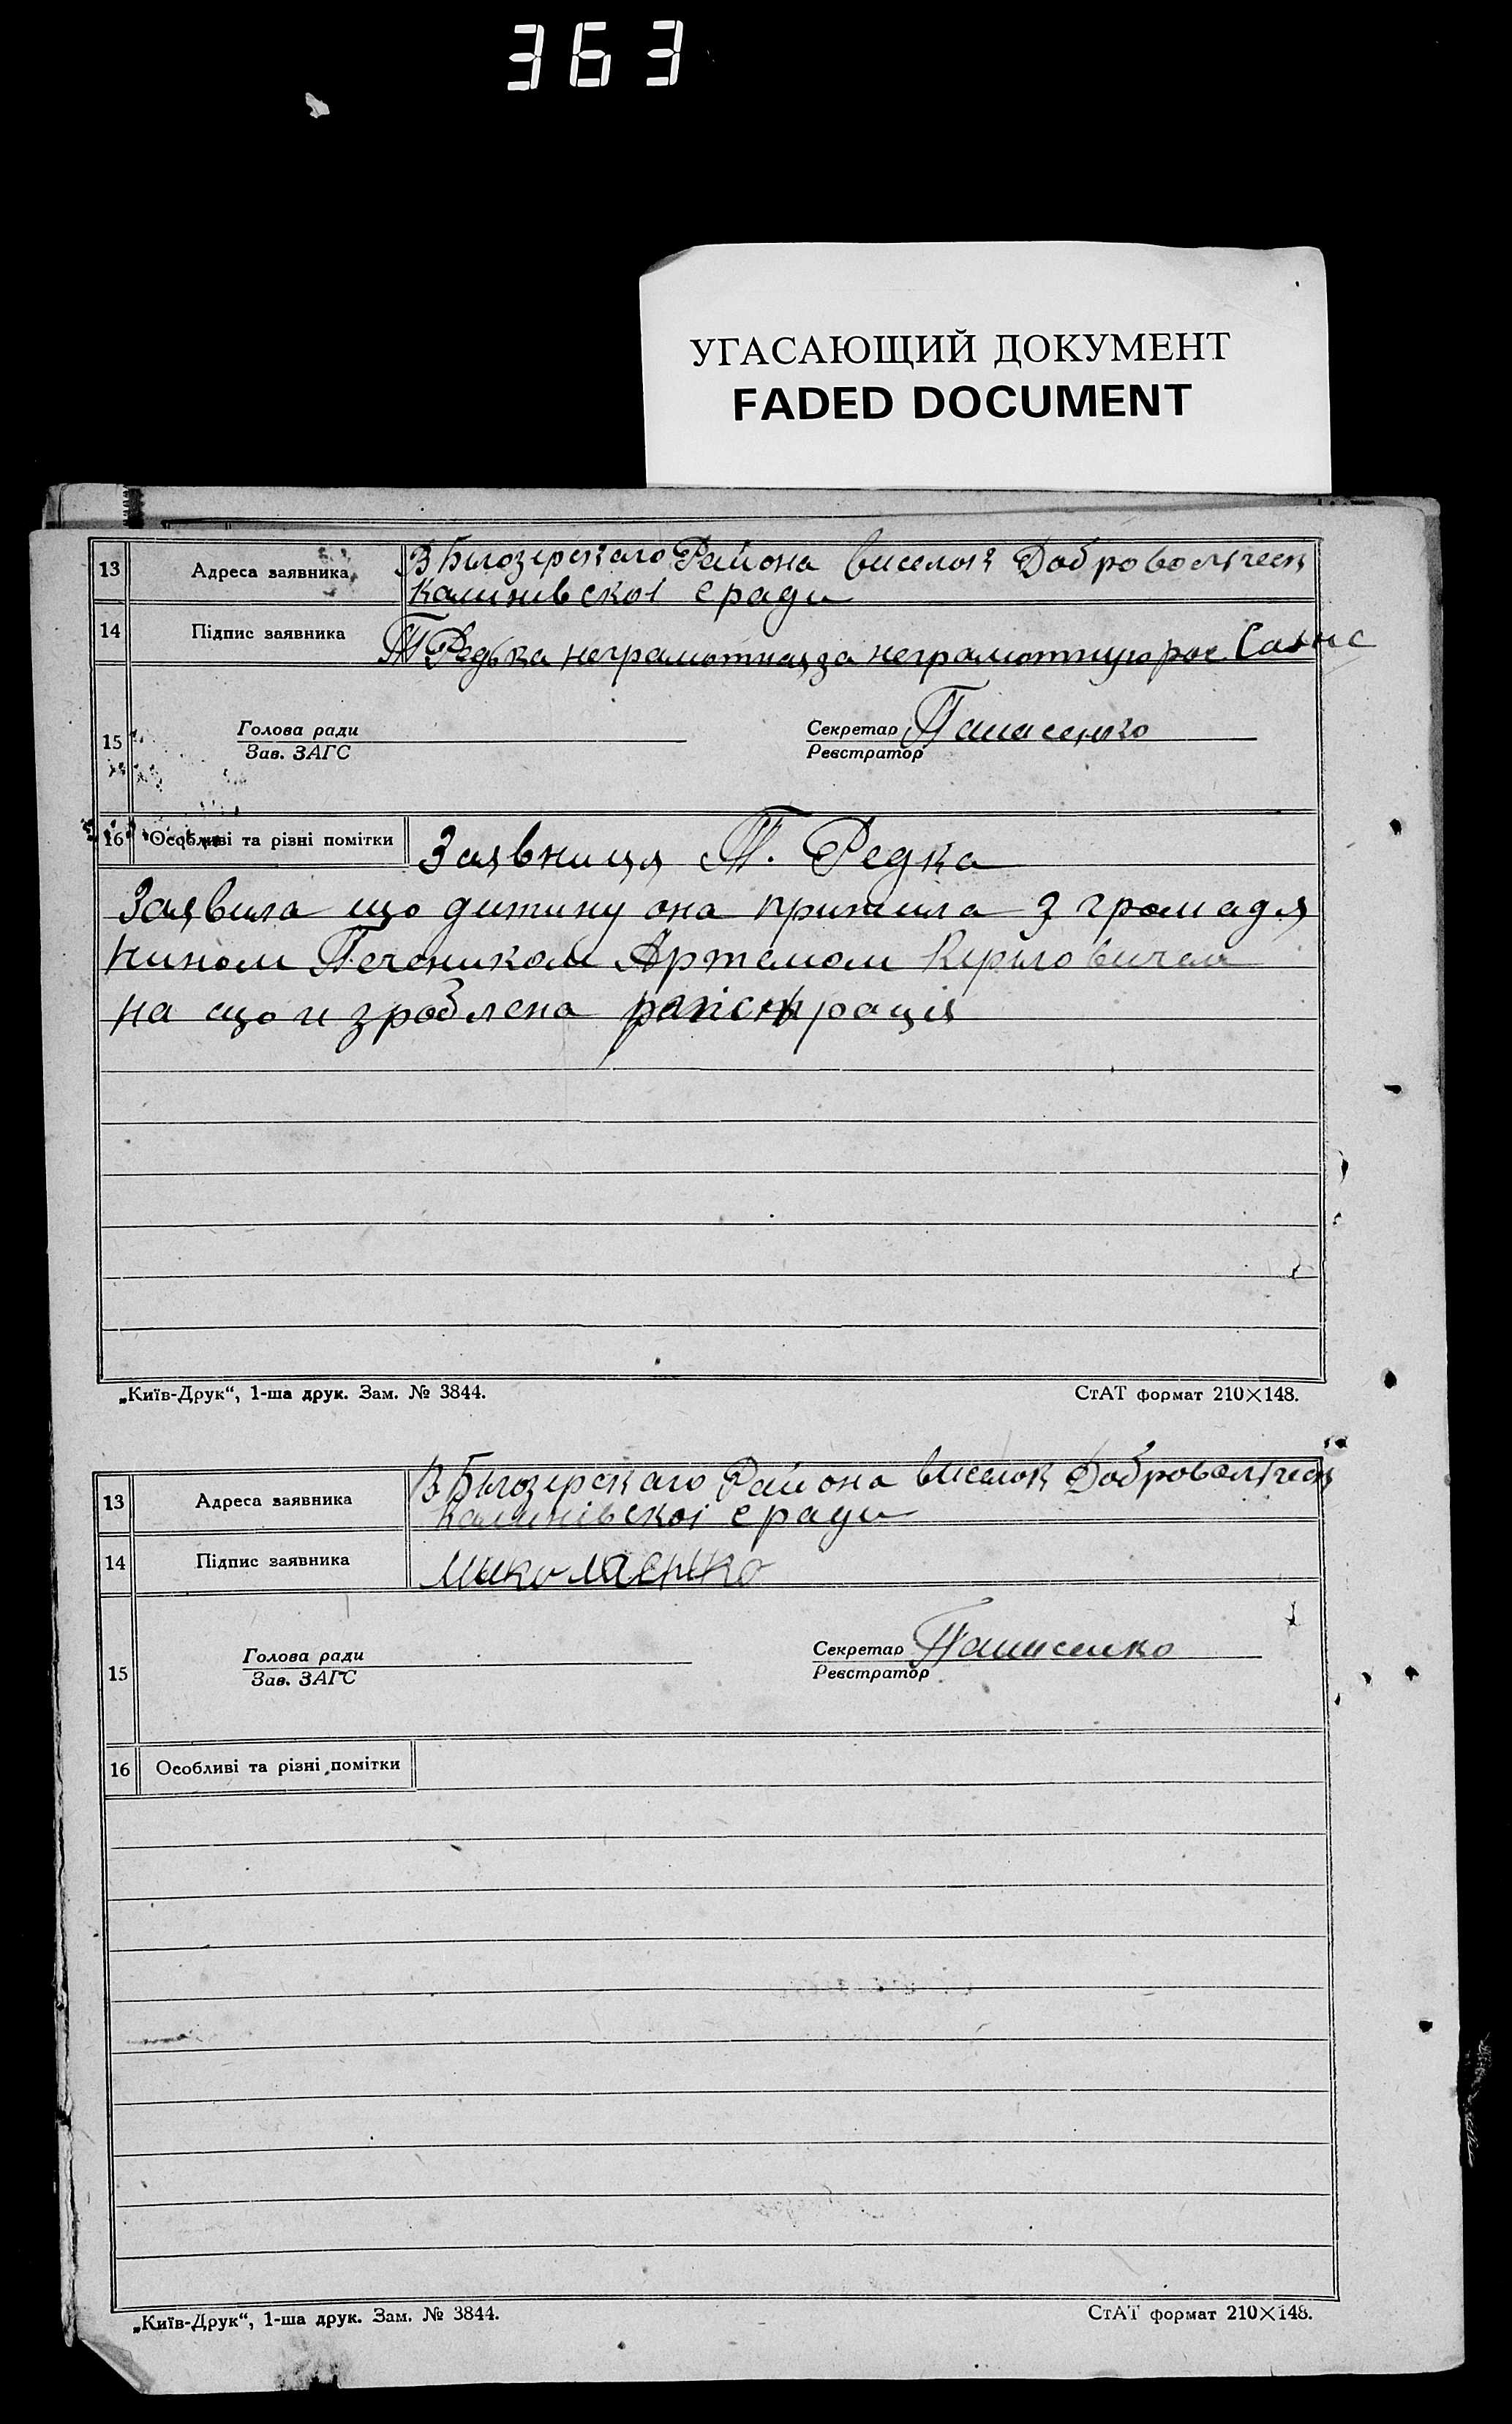 363
УГАСАЮЩИЙ ДОКУМЕНТ
FADED DOCUMENT
13 Адреса заявника В Білозерскаго Района виселок Доброволческ
Калинівскоі с ради
14 Підпис заявника Т Редька неграмотная за неграмотную рос.
15 Голова ради
Зав. ЗАГС
Секретар Панасенко
Реєстратор
16 Особливі та різні помітки Заявниця Т. Редка
Заявила що дитину она прижила з громадя
нином Печеником Артемом Кіріловичем
на що и зроблена рагістрація
„Київ-Друк“, 1-ша друк. Зам. № 3844. СтАТ формат 210×148.
13 Адреса заявника В Білозерскаго Района виселок Доброволческ
Калинівскоі с ради
14 Підпис заявника Миколаенко
15 Голова ради
Зав. ЗАГС
Секретар Панасенко
Реєстратор
16 Особливі та різні помітки
„Київ-Друк“, 1-ша друк. Зам. № 3844. СтАТ формат 210×148.